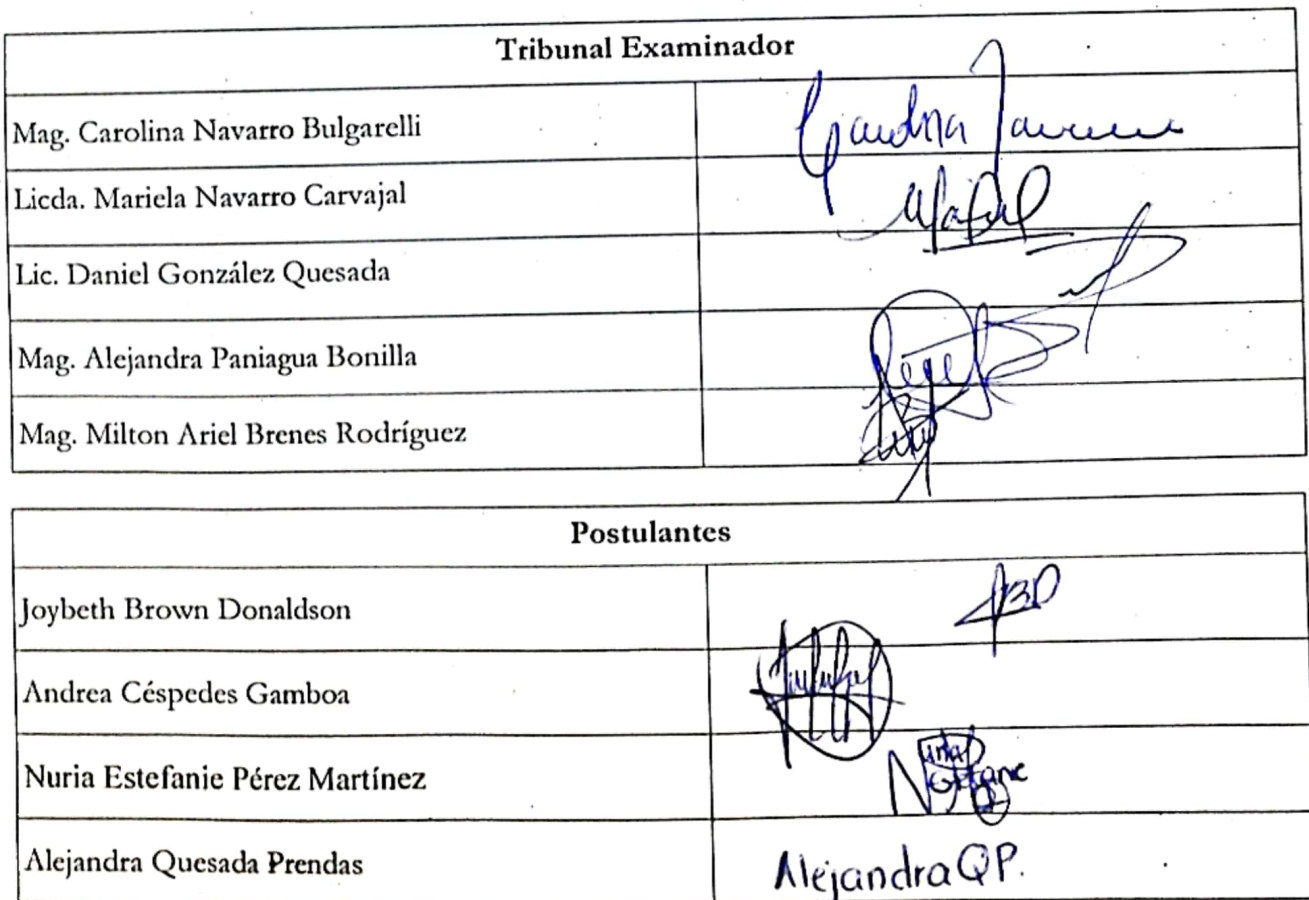 Tribunal Examinador
Mag. Carolina Navarro Bulgarelli
Licda. Mariela Navarro Carvajal
Lic. Daniel González Quesada
Mag. Alejandra Paniagua Bonilla
Mag. Milton Ariel Brenes Rodríguez
Postulantes
Joybeth Brown Donaldson JBD
Andrea Céspedes Gamboa
Nuria Estefanie Pérez Martínez
Alejandra Quesada Prendas Alejandra QP.